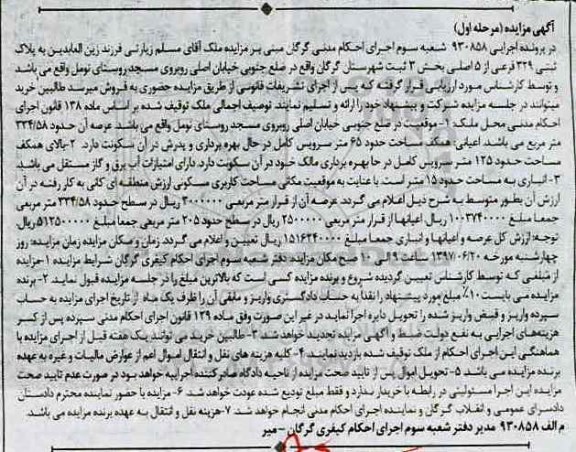 آگهی مزایده (مرحله اول)
در پرونده اجرایی ۹۳۰۸۵۸ شعبه سوم اجرای احکام مدنی گرگان مبنی بر مزایده ملک آقای مسلم زیارتی فرزند زین العابدین به پلاک
ثبتی ۳۲۹ فرعی از ۵ اصلی بخش ۳ ثبت شهرستان گرگان واقع در ضلع جنوبی خیابان اصلی روبروی مسجد روستای تومل واقع می باشد
و توسط کارشناس مورد ارزیابی قرار گرفته که پس از اجرای تشریفات قانونی از طریق مزایده حضوری به فروش میرسد طالبین خرید
میتوانند در جلسه مزایده شرکت و پیشنهاد خود را ارائه و تسلیم نمایند. توصیف اجمالی ملک توقیف شده بر اساس ماده ۱۳۸ قانون اجرای
احکام مدنی محل ملک: ۱- موقعیت در ضلع جنوبی خیابان اصلی روبروی مسجد روستای تومل واقع می باشد. عرصه آن حدود ۳۳۴/۵۸
متر مربع می باشد. اعیانی: همکف مساحت حدود ۶۵ متر سرویس کامل در حال بهره برداری و پدرش در آن سکونت دارد. ۲-بالای همکف
مساحت حدود ۱۲۵ متر سرویس کامل در حا بهره برداری مالک خود در آن سکونت دارد. دارای امتیازات آب برق و گاز مستقل می باشد.
۳- انباری به مساحت حدود ۱۵ متر است. با عنایت به موقعیت مکانی مساحت کاربری مسکونی ارزش منطقه ای کانی به کار رفته در آن
ارزش آن بطور متوسط به شرح ذیل اعلام می گردد. عرصه آن از قرار متر مربعی ۳۰۰۰۰۰۰ ریال در سطح حدود ۳۳۴/۵۸ متر مربعی
جمعا مبلغ ۱۰۰۳۷۴۰۰۰۰ ریال اعیانها از قرار متر مربعی ۲۵۰۰۰۰۰ ریال در سطح حدود ۲۰۵ متر مربعی جمعا مبلغ ۵۱۲۵۰۰۰۰۰ ریال
توجه: ارزش کل عرصه و اعیانها و انباری جمعا مبلغ ۱۵۱۶۲۴۰۰۰۰ ریال تعیین و اعلام می گردد. زمان و سکان مزایده زمان مزایده: روز
چهارشنبه مورخه ۱۳۹۷/۰۶/۲۰ ساعت ۹ الی ۱۰ صبح مکان مزایده: دفتر شعبه سوم اجرای احکام کیفری گرگان شرایط مزایده ۱-مزایده
از مبلغی که توسط کارشناس تعیین گردیده شروع و برنده مزایده کسی است که بالاترین مبلغ را در جلسه مزایده قبول نماید. ۲- برنده
مزایده می بایست ۱۰٪ مبلغ مورد پیشنهاد را نقدا به حساب دادگستری واریز و مابقی آن را ظرف یک ماه از تاریخ اجرای مزایده به حساب
سپرده واریز و قبض واریز شده را تحویل دایره اجرا نماید در غیر این صورت وفق ماده ۱۲۹ قانون اجرای احکام مدنی سپرده پس از کسر
هزینه های اجرایی به نفع دولت ضبط و آگهی مزایده تجدید خواهد شد. ۳- طالبین خرید می توانند یک هفته قبل از اجرای مزایده با
هماهنگی این اجرای احکام از ملک توقیف شده بازدید نمایند. ۴- کلیه هزینه های نقل و انتقال اموال اعم از عوارض مالیات و غیره به عهده
برنده مزایده می باشد ۵- تحویل اموال پس از تایید صحت مزایده از ناحیه دادگاه صادر کننده اجراییه خواهد بود در صورت عدم تایید صحت
مزایده این اجرا مسئولیتی در رابطه با خریدار ندارد و فقط مبلغ تودیع شده عودت خواهد شد. ۶- مزایده با حضور نماینده محترم دادستان
دادسرای عمومی و انقلاب گرگان و نماینده اجرای احکام مدنی انجام خواهد شد. ۷-هزینه نقل و انتقال به عهده برنده مزایده می باشد.
م الف ۹۳۰۸۵۸ مدیر دفتر شعبه سوم اجرای احکام کیفری گرگان - میر